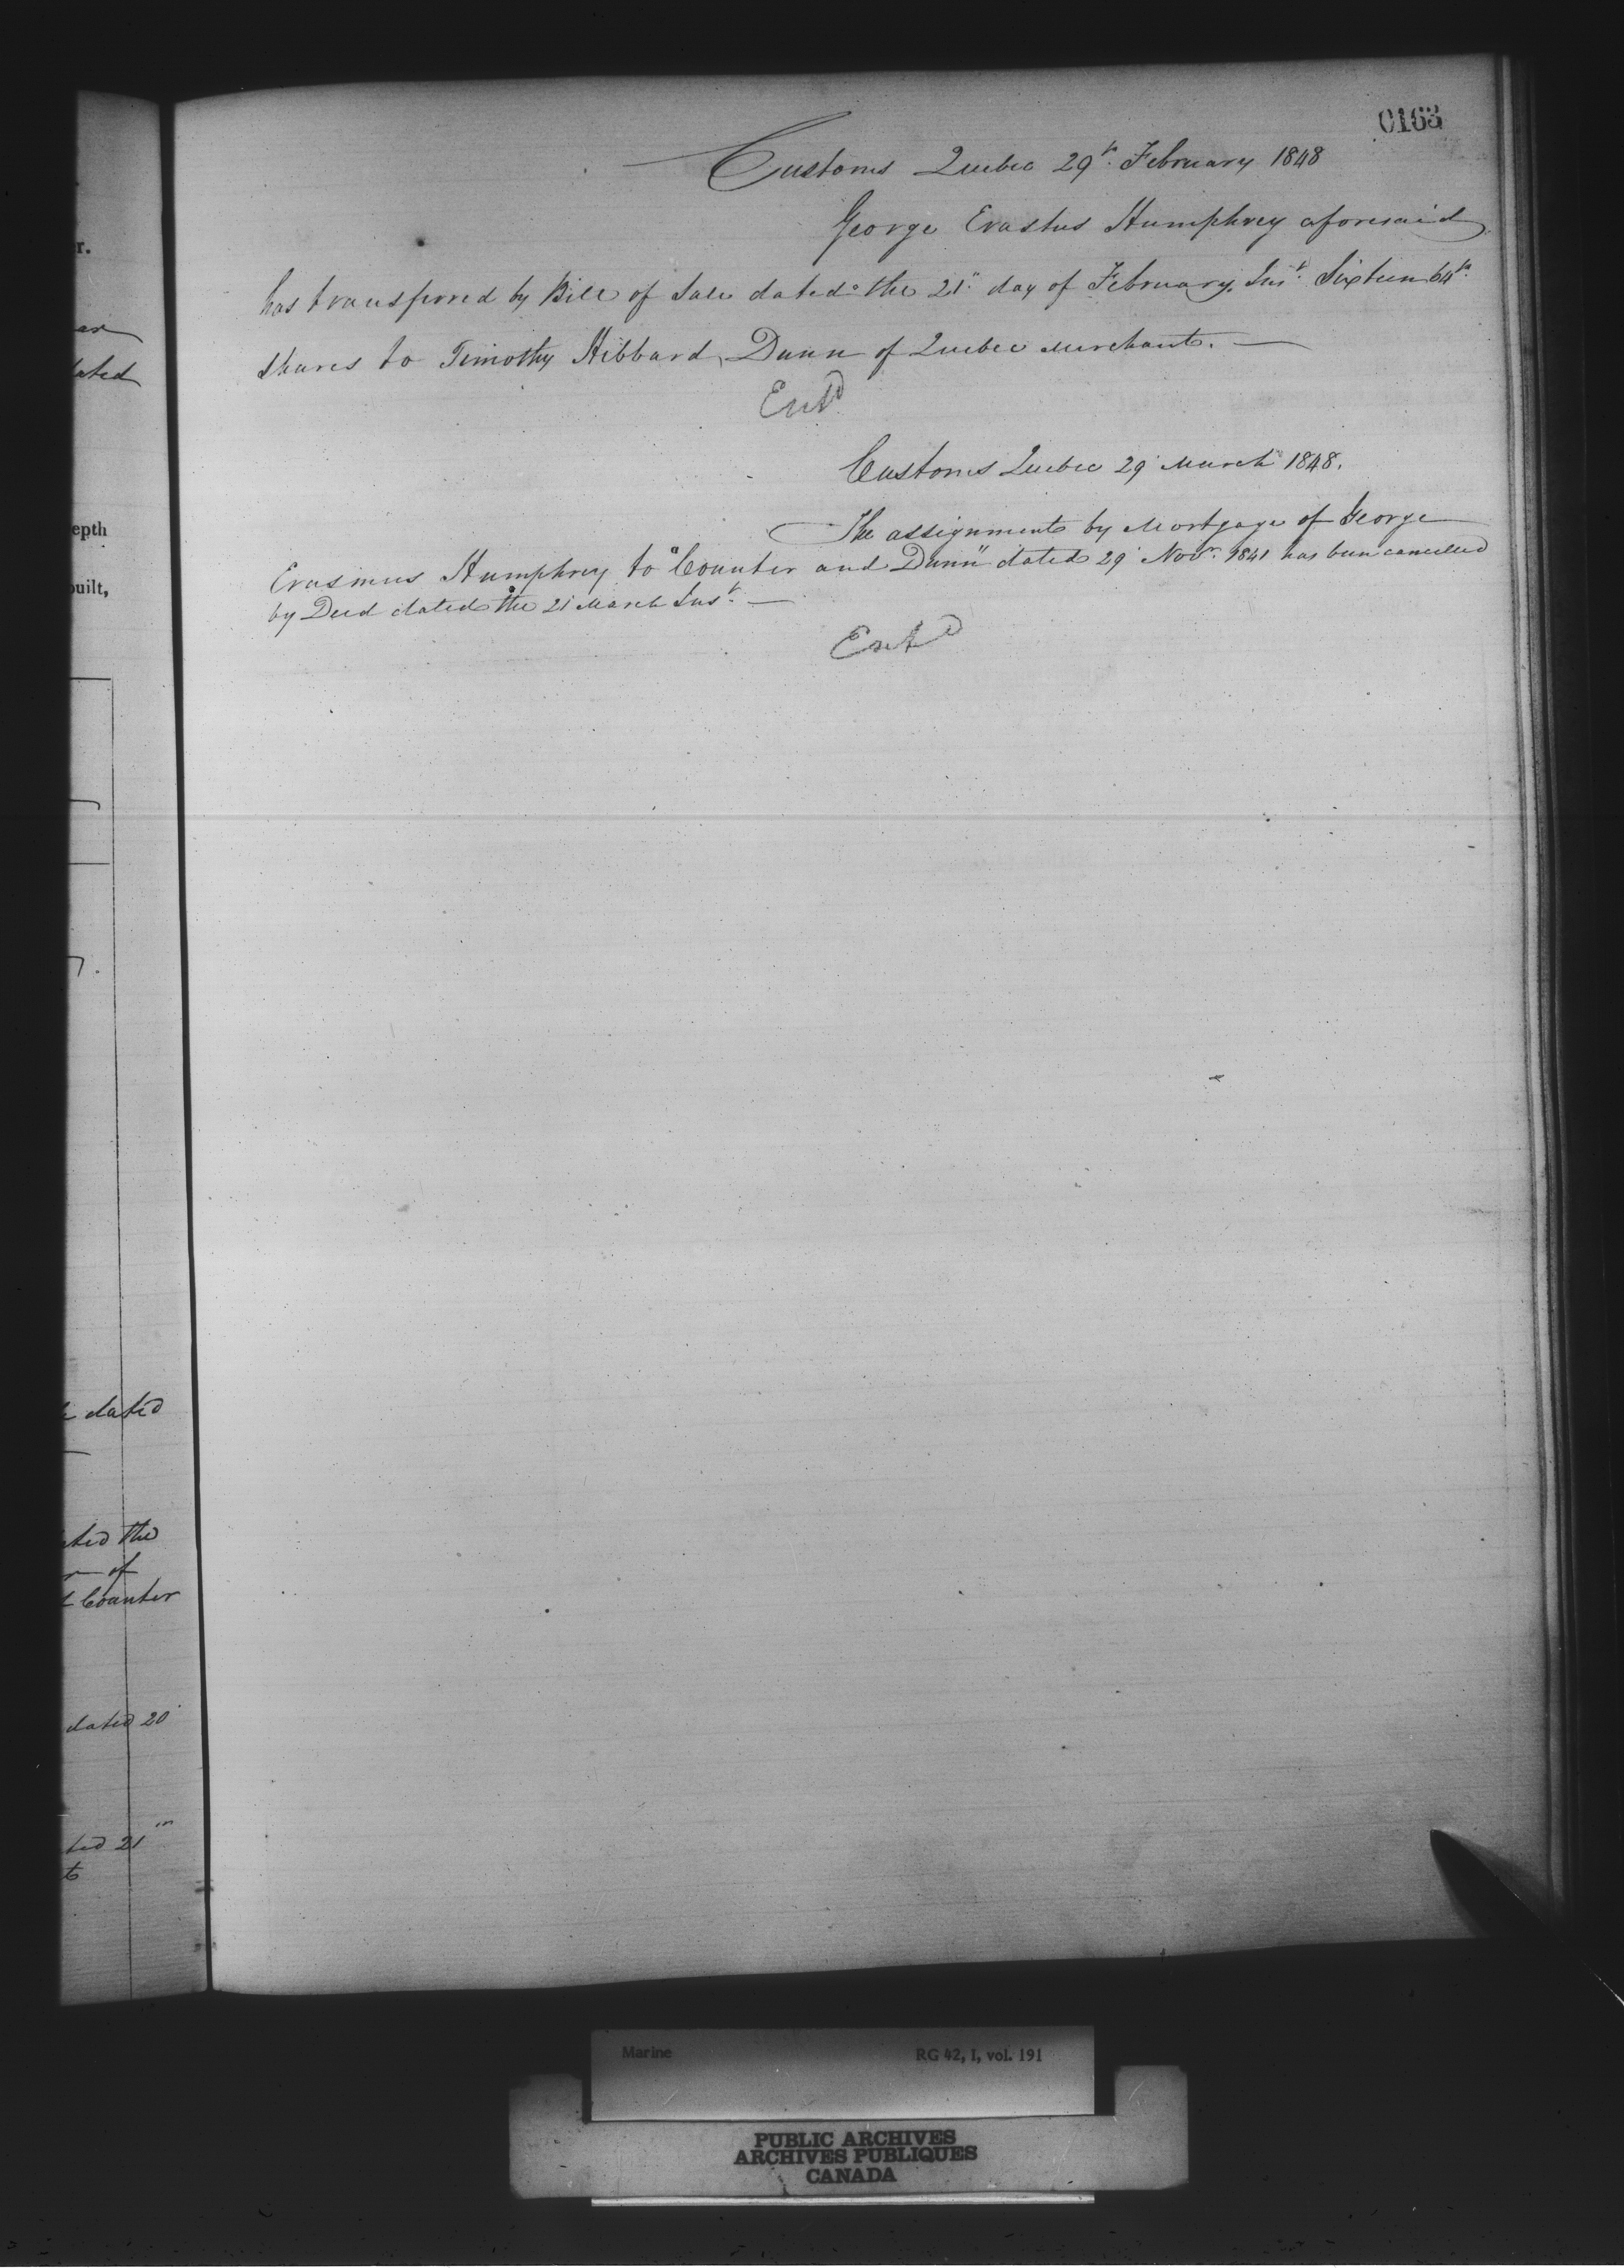 0163
Customs Quebec 29th February 1848
George Erastus Humphrey aforesaid
has transferred by Bill of Sale dated the 21" day of February Inst Sixteen 64th
shares to Timothy Hibbard Dunn of Quebec Merchant.
Entd
Customs Quebec 29 March 1848.
The assignment by Mortgage of George
Erasmus Humphrey to "Counter and Dunn" dated 29 Novr. 1841 has been cancelled
by Deed dated the 21 March Inst.
Entd
r.
dated
epth
built,
dated
the
of
Counter
dated 20
21
Marine RG 42, 1, vol. 191
PUBLIC ARCHIVES
ARCHIVES PUBLIQUES
CANADA